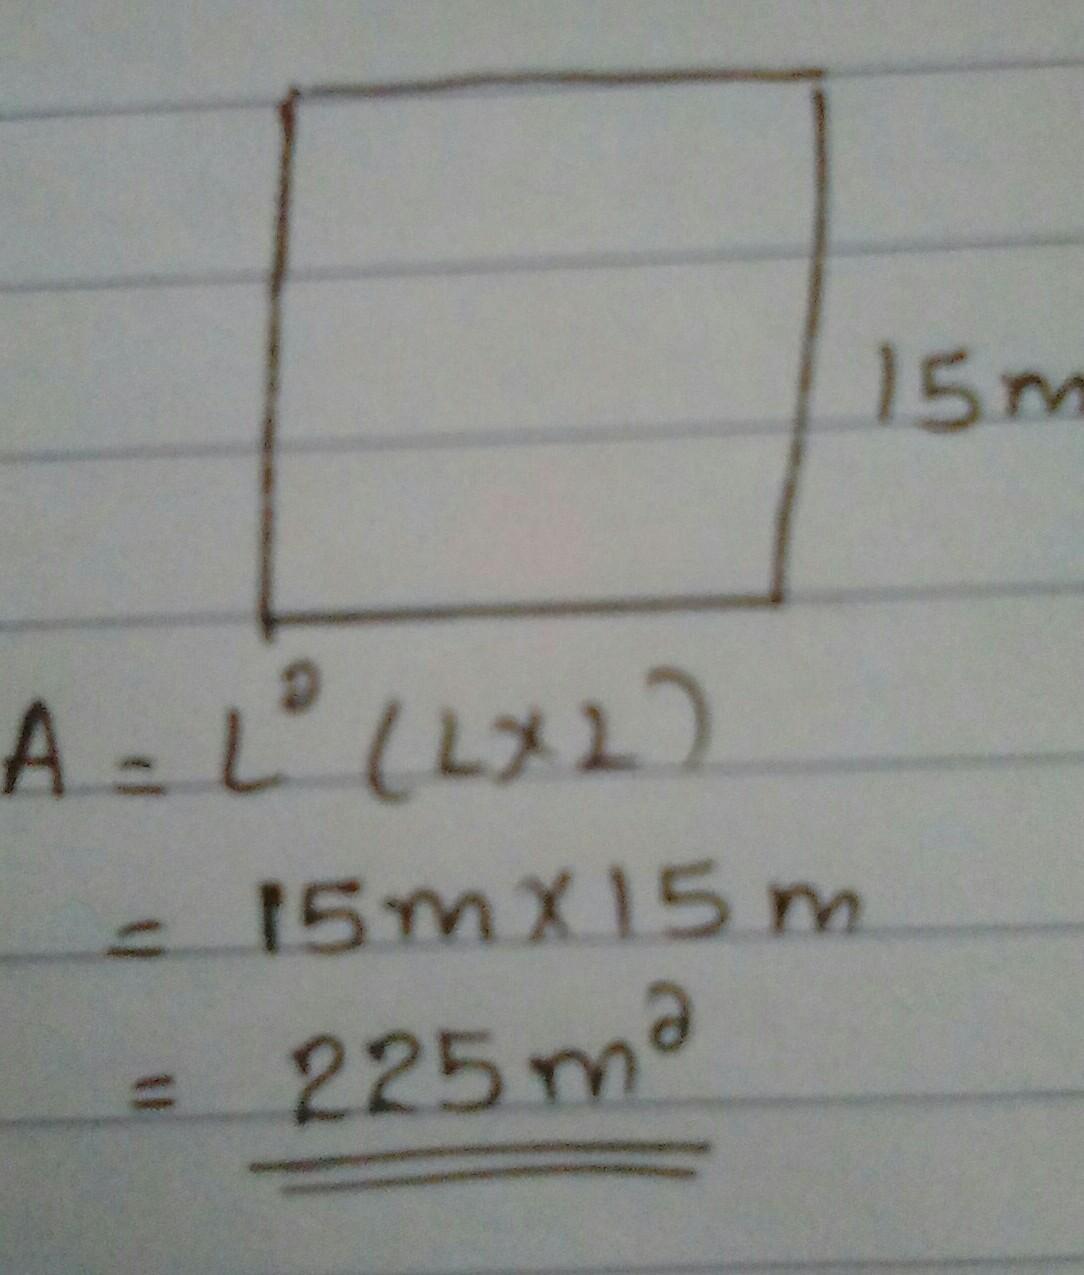 15m
A = L² (L×L)
= 15m×15m
= 225m²